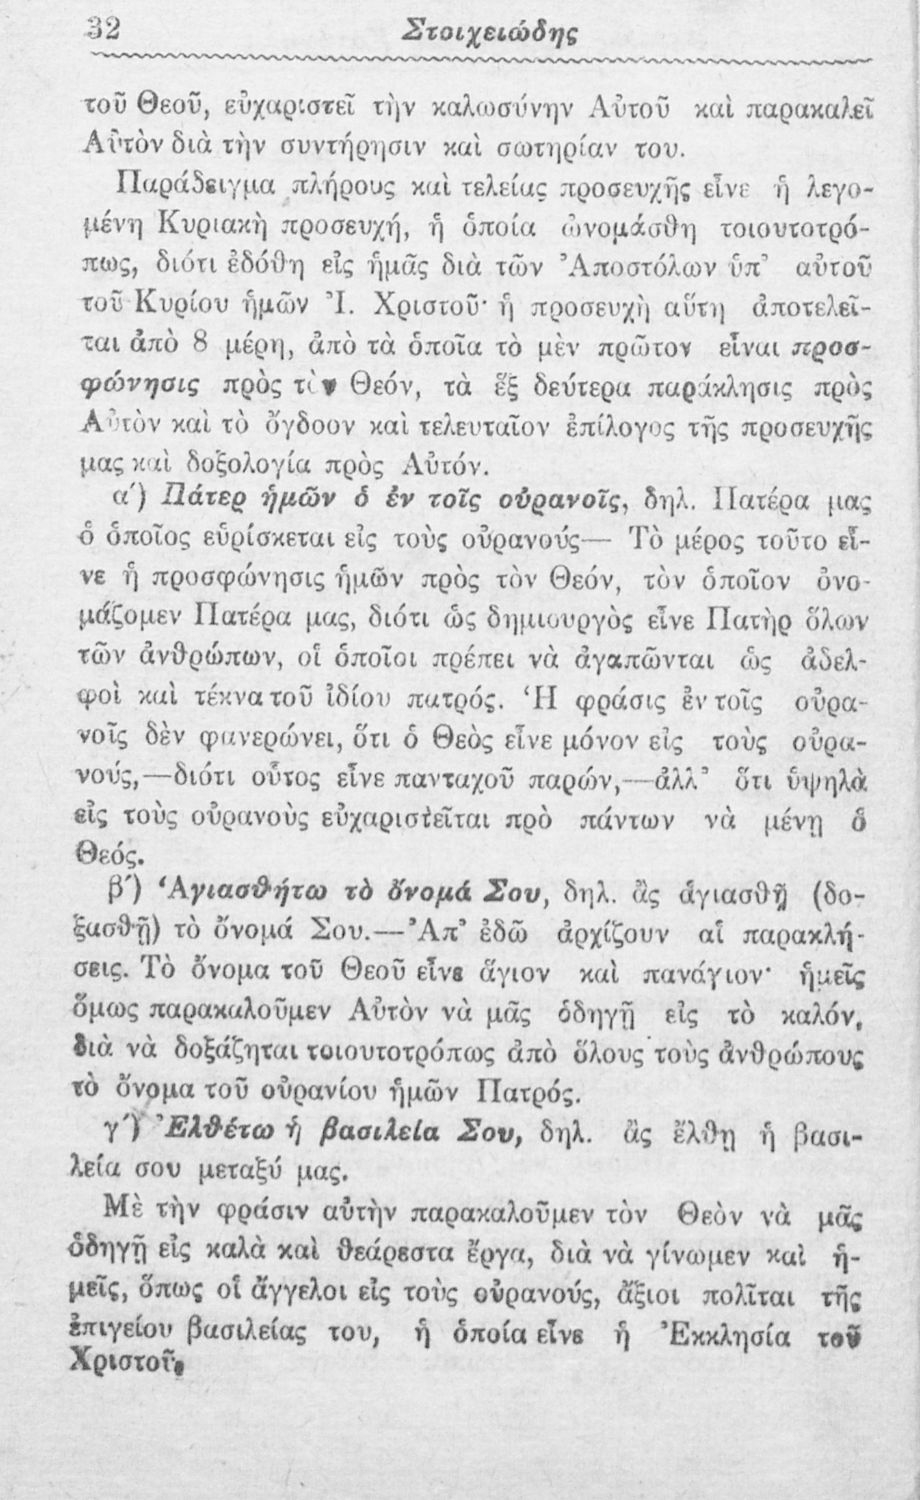 32
Στοιχειώδης
τοῦ Θεοῦ, εὐχαριστεῖ τὴν καλωσύνην Αὐτοῦ καὶ παρακαλεῖ
Αὐτὸν διὰ τὴν συντήρησιν καὶ σωτηρίαν του.
Παράδειγμα πλήρους καὶ τελείας προσευχῆς εἶνε ἡ λεγο-
μένη Κυριακὴ προσευχή, ἡ ὁποία ὠνομάσθη τοιουτοτρό-
πως, διότι ἐδόθη εἰς ἡμᾶς διὰ τῶν Ἀποστόλων ὑπ' αὐτοῦ
τοῦ Κυρίου ἡμῶν Ἰ. Χριστοῦ· ἡ προσευχὴ αὕτη ἀποτελεῖ-
ται ἀπὸ 8 μέρη, ἀπὸ τὰ ὁποῖα τὸ μὲν πρῶτον εἶναι προσ-
φώνησις πρὸς τὸν Θεόν, τὰ ἓξ δεύτερα παράκλησις πρὸς
Αὐτὸν καὶ τὸ ὄγδοον καὶ τελευταῖον ἐπίλογος τῆς προσευχῆς
μας καὶ δοξολογία πρὸς Αὐτόν.
α') Πάτερ ἡμῶν ὁ ἐν τοῖς οὐρανοῖς, δηλ. Πατέρα μας
ὁ ὁποῖος εὑρίσκεται εἰς τοὺς οὐρανούς— Τὸ μέρος τοῦτο εἶ-
νε ἡ προσφώνησις ἡμῶν πρὸς τὸν Θεόν, τὸν ὁποῖον ὀνο-
μάζομεν Πατέρα μας, διότι ὡς δημιουργὸς εἶνε Πατὴρ ὅλων
τῶν ἀνθρώπων, οἱ ὁποῖοι πρέπει νὰ ἀγαπῶνται ὡς ἀδελ-
φοὶ καὶ τέκνα τοῦ ἰδίου πατρός. Ἡ φράσις ἐν τοῖς οὐρα-
νοῖς δὲν φανερώνει, ὅτι ὁ Θεὸς εἶνε μόνον εἰς τοὺς οὐρα-
νούς,—διότι οὗτος εἶνε πανταχοῦ παρών,—ἀλλ' ὅτι ὑψηλὰ
εἰς τοὺς οὐρανοὺς εὐχαριστεῖται πρὸ πάντων νὰ μένῃ ὁ
Θεός.
β') Ἁγιασθήτω τὸ ὄνομά Σου, δηλ. ἂς ἁγιασθῇ (δο-
ξασθῇ) τὸ ὄνομά Σου.—Ἀπ' ἐδῶ ἀρχίζουν αἱ παρακλή-
σεις. Τὸ ὄνομα τοῦ Θεοῦ εἶνε ἅγιον καὶ πανάγιον· ἡμεῖς
ὅμως παρακαλοῦμεν Αὐτὸν νὰ μᾶς ὁδηγῇ εἰς τὸ καλόν,
διὰ νὰ δοξάζηται τοιουτοτρόπως ἀπὸ ὅλους τοὺς ἀνθρώπους
τὸ ὄνομα τοῦ οὐρανίου ἡμῶν Πατρός.
γ') Ἐλθέτω ἡ βασιλεία Σου, δηλ. ἂς ἔλθῃ ἡ βασι-
λεία σου μεταξύ μας.
Μὲ τὴν φράσιν αὐτὴν παρακαλοῦμεν τὸν Θεὸν νὰ μᾶς
ὁδηγῇ εἰς καλὰ καὶ θεάρεστα ἔργα, διὰ νὰ γίνωμεν καὶ ἡ-
μεῖς, ὅπως οἱ ἄγγελοι εἰς τοὺς οὐρανούς, ἄξιοι πολῖται τῆς
ἐπιγείου βασιλείας του, ἡ ὁποία εἶνε ἡ Ἐκκλησία τοῦ
Χριστοῦ.